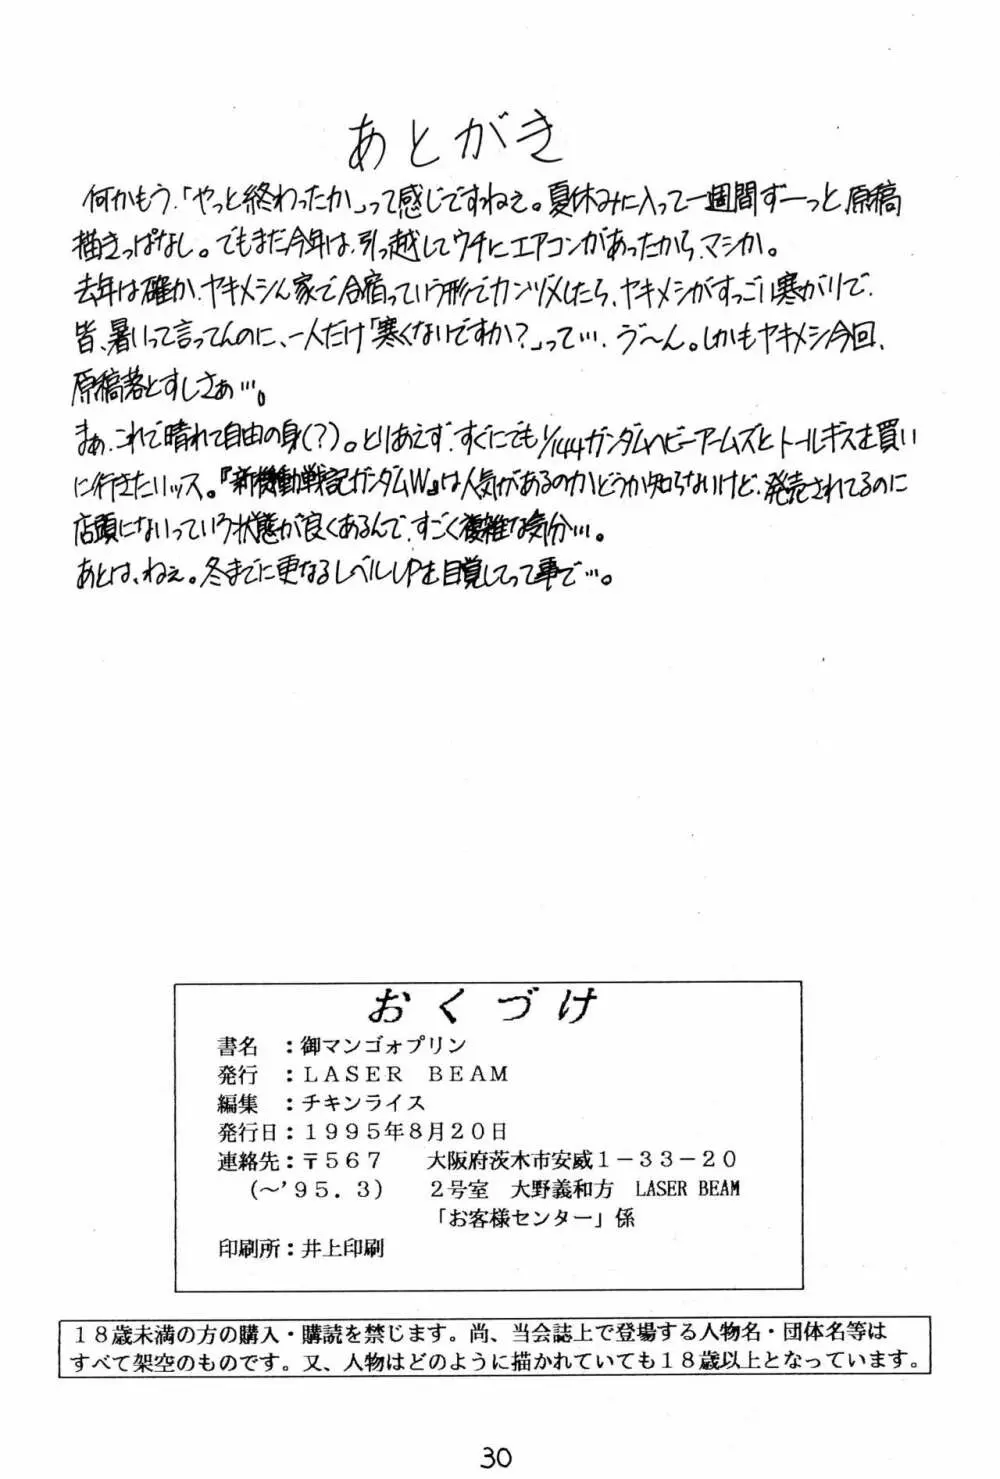 あとがき
何かもう、「やっと終わったか」って感じですねぇ。夏休みに入って一週間ずーっと原稿
描きっぱなし。でもまだ今年は、引っ越してウチにエアコンがあったから、マシか。
去年は確か、ヤキメシん家で合宿っていう形でカンヅメしたら、ヤキメシがすっごい寒がりで、
皆、暑いって言ってんのに、一人だけ「寒くないですか?」って…、ゔ〜ん。しかもヤキメシ今回、
原稿落とすしさぁ…。
まぁ、これで晴れて自由の身(?)。とりあえず、すぐにでも1/144ガンダムヘビーアームズとトールギスを買い
に行きたいッス。『新機動戦記ガンダムW』は人気があるのかどうか知らないけど、発売されてるのに
店頭にないっていう状態が良くあるんで、すごく複雑な気分…。
あとは、ねぇ。冬までに更なるレベルUPを目覚してって事で…。
おくづけ
書名 :御マンゴォプリン
発行 :LASER BEAM
編集 :チキンライス
発行日:1995年8月20日
連絡先:〒567 大阪府茨木市安威1-33-20
(〜'95.3) 2号室 大野義和方 LASER BEAM
「お客様センター」係
印刷所:井上印刷
18歳未満の方の購入・購読を禁じます。尚、当会誌上で登場する人物名・団体名等は
すべて架空のものです。又、人物はどのように描かれていても18歳以上となっています。
30